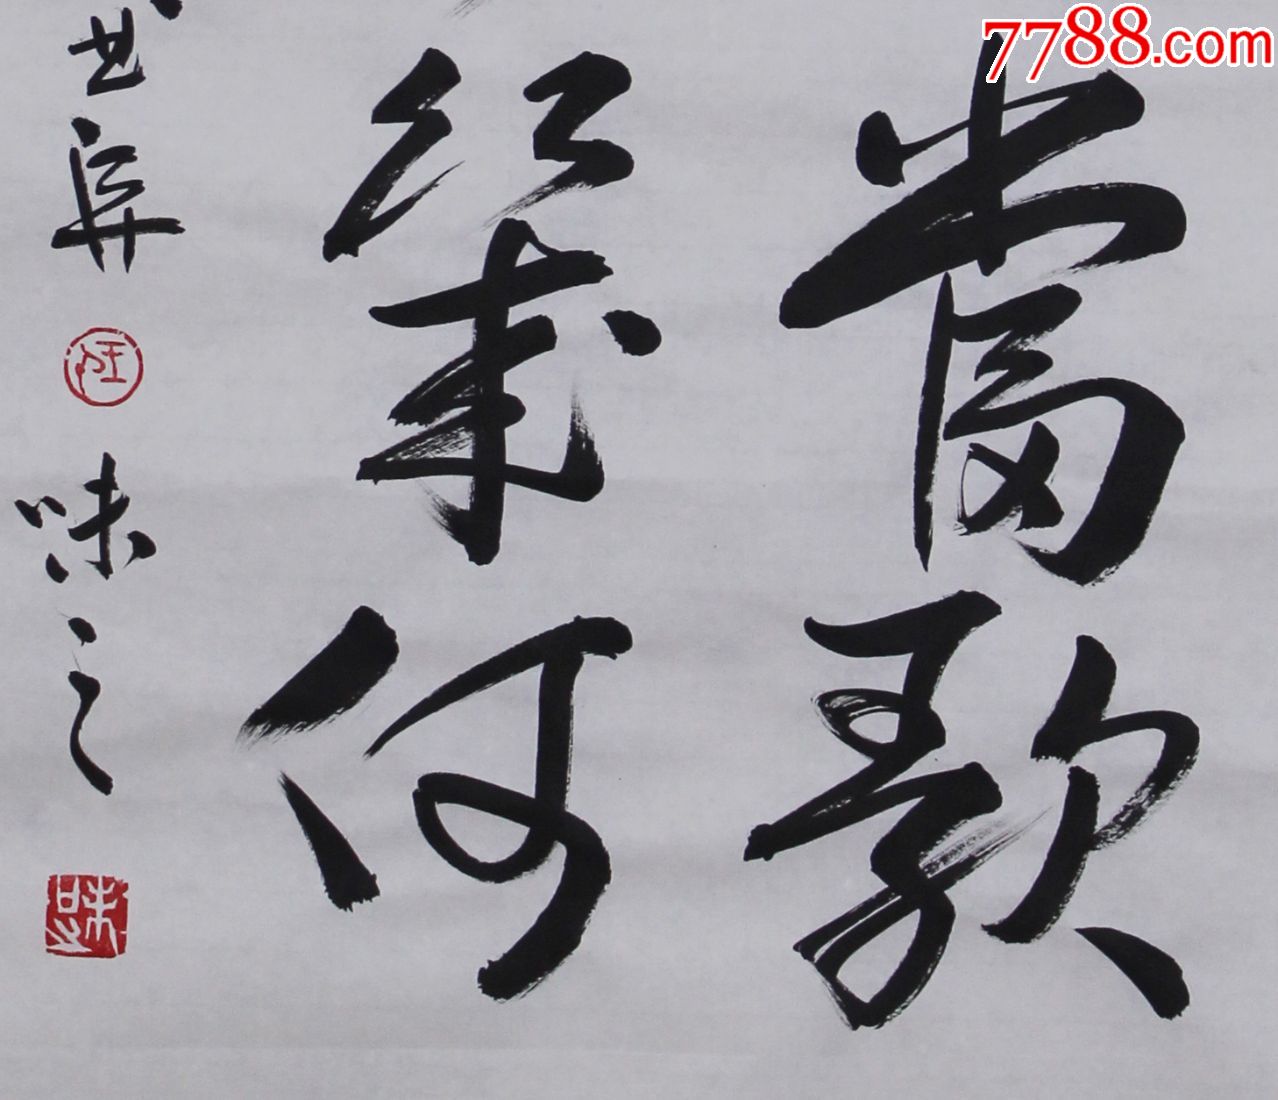 7788.com
當歌
幾何
曲阜
味之